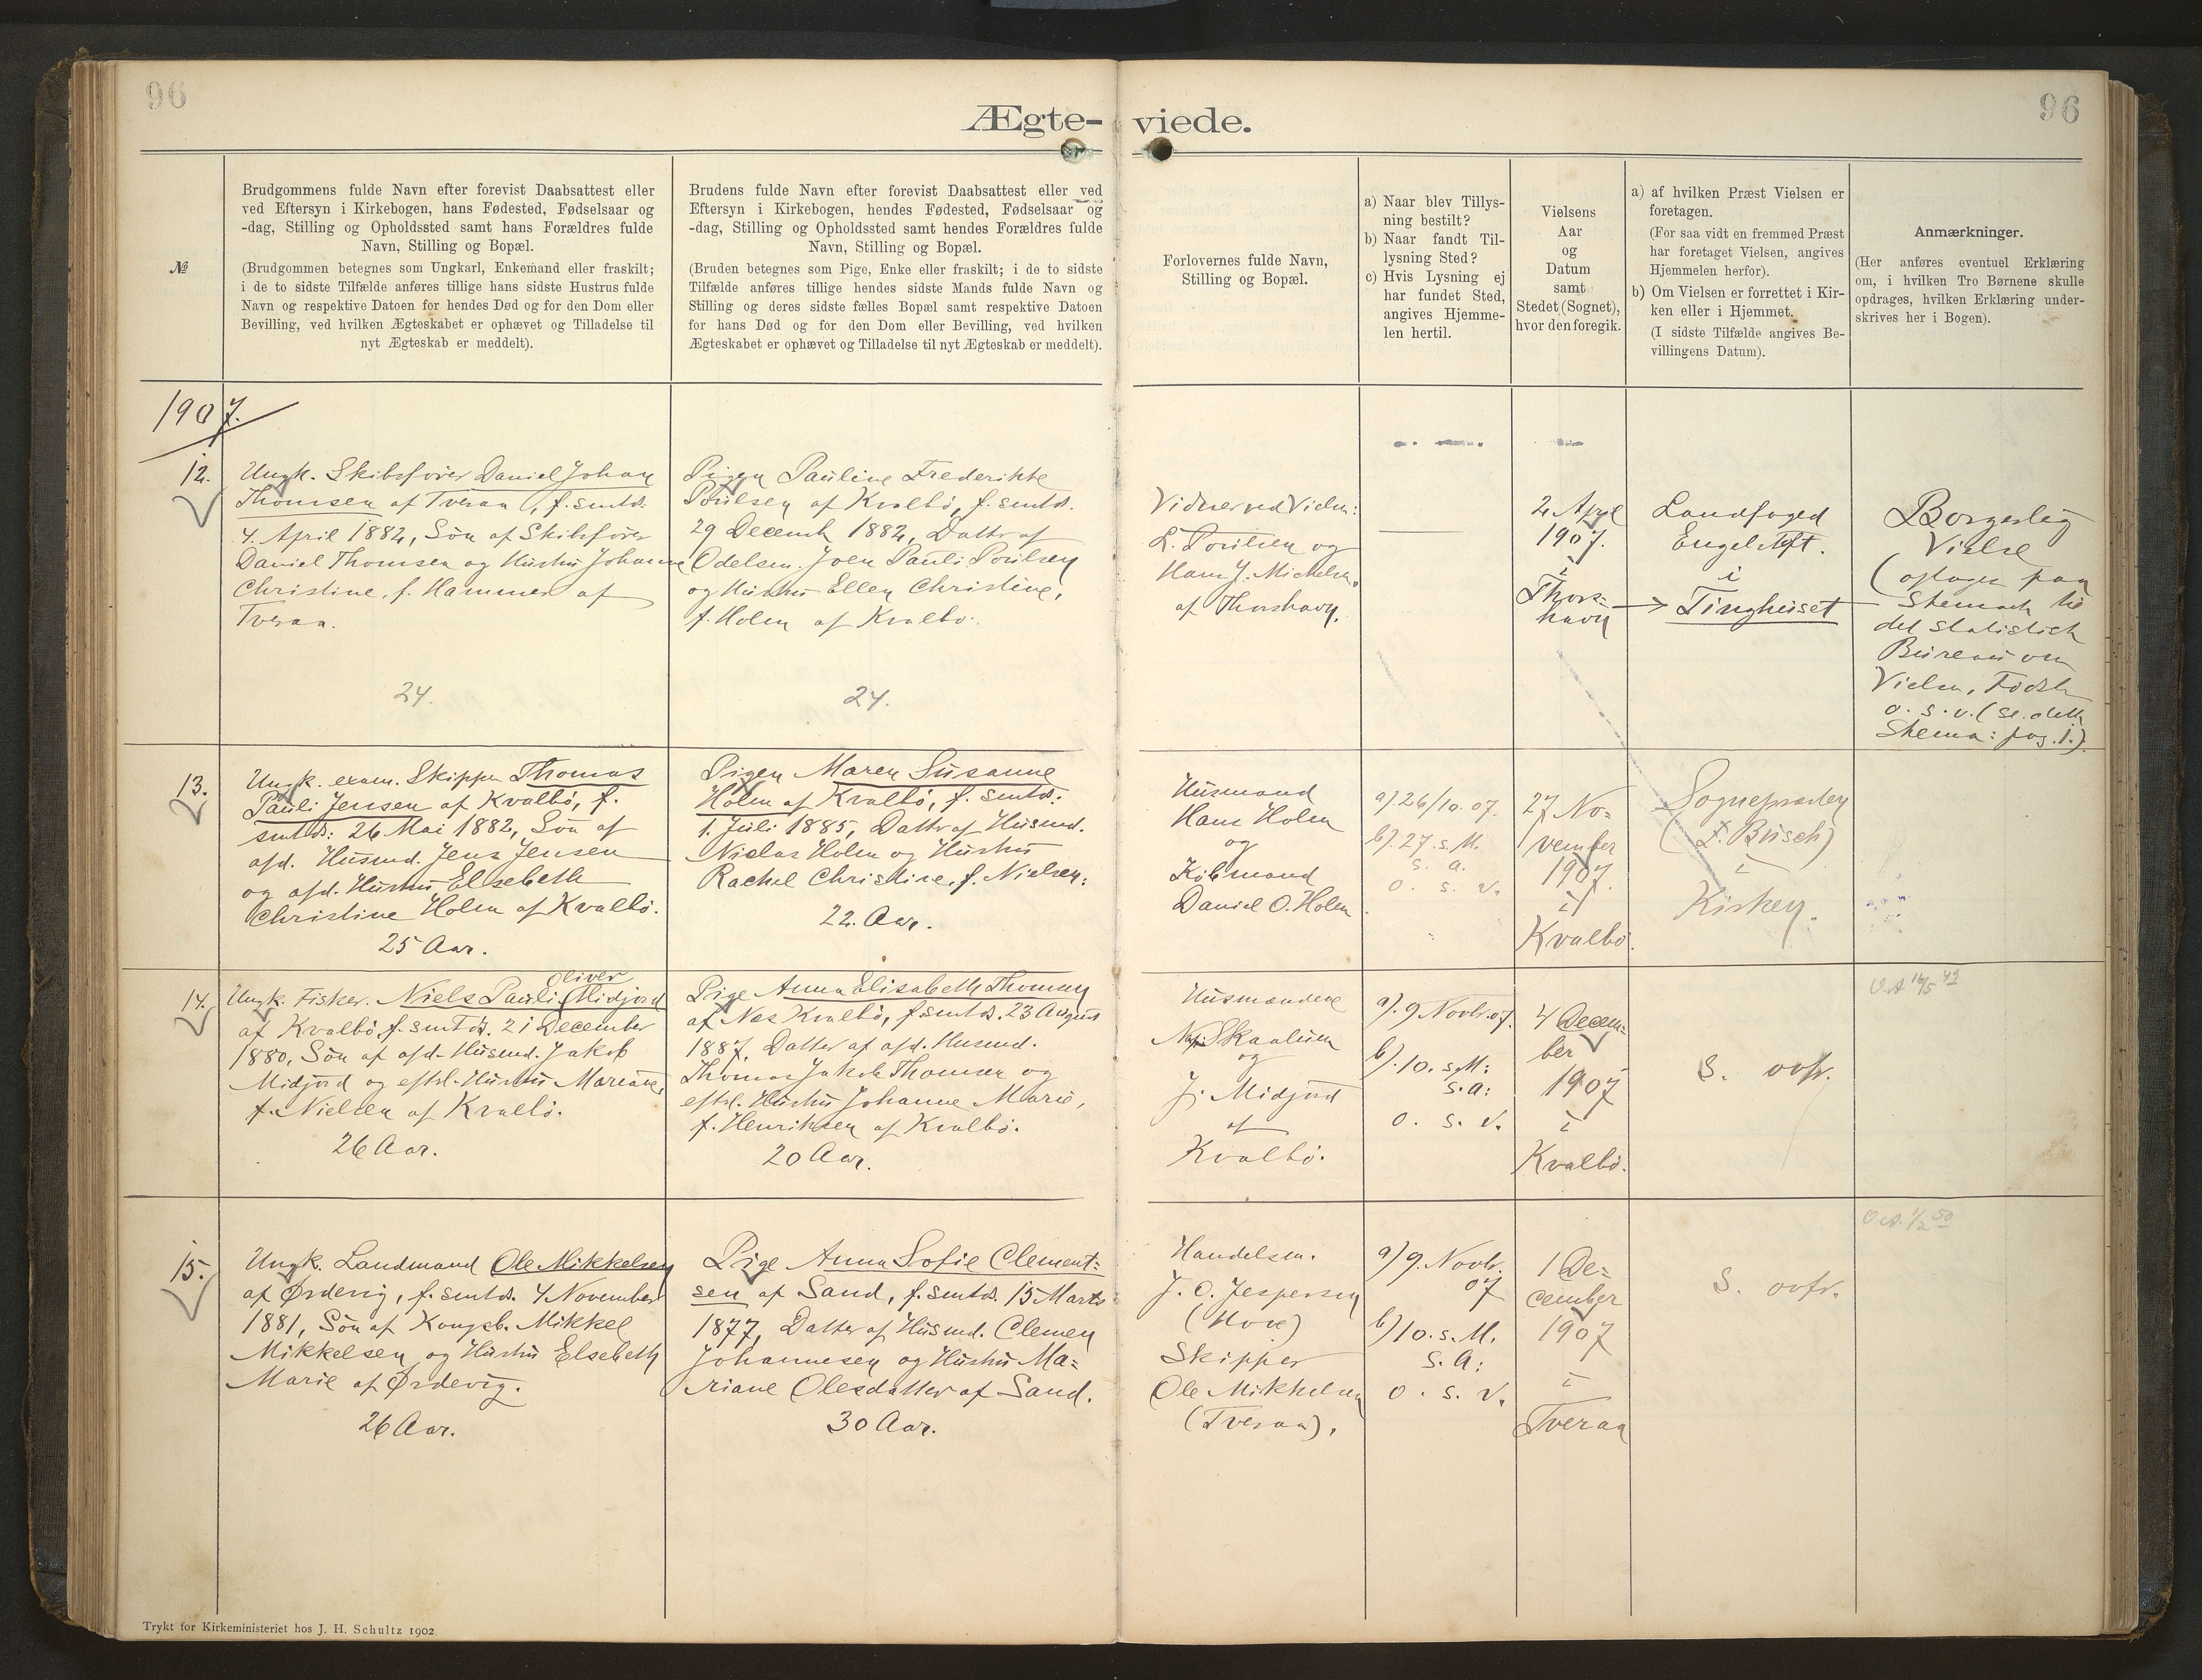 96
Ægte-
viede.
96
№
Brudgommens fulde Navn efter forevist Daabsattest eller
ved Eftersyn i Kirkebogen, hans Fødested, Fødselsaar og
-dag, Stilling og Opholdssted samt hans Forældres fulde
Navn, Stilling og Bopæl.
(Brudgommen betegnes som Ungkarl, Enkemand eller fraskilt;
i de to sidste Tilfælde anføres tillige hans sidste Hustrus fulde
Navn og respektive Datoen for hendes Død og for den Dom eller
Bevilling, ved hvilken Ægteskabet er ophævet og Tilladelse til
nyt Ægteskab er meddelt).
Brudens fulde Navn efter forevist Daabsattest eller ved
Eftersyn i Kirkebogen, hendes Fødested, Fødselsaar og
-dag, Stilling og Opholdssted samt hendes Forældres fulde
Navn, Stilling og Bopæl.
(Bruden betegnes som Pige, Enke eller fraskilt; i de to sidste
Tilfælde anføres tillige hendes sidste Mands fulde Navn og
Stilling og deres sidste fælles Bopæl samt respektive Datoen
for hans Død og for den Dom eller Bevilling, ved hvilken
Ægteskabet er ophævet og Tilladelse til nyt Ægteskab er meddelt).
Forlovernes fulde Navn,
Stilling og Bopæl.
a) Naar blev Tillys-
ning bestilt?
b) Naar fandt Til-
lysning Sted?
c) Hvis Lysning ej
har fundet Sted,
angives Hjemme-
len hertil.
Vielsens
Aar
og
Datum
samt
Stedet (Sognet),
hvor den foregik.
a) af hvilken Præst Vielsen er
foretagen.
(For saa vidt en fremmed Præst
har foretaget Vielsen, angives
Hjemmelen herfor).
b) Om Vielsen er forrettet i Kir-
ken eller i Hjemmet.
(I sidste Tilfælde angives Be-
villingens Datum).
Anmærkninger.
(Her anføres eventuel Erklæring
om, i hvilken Tro Børnene skulle
opdrages, hvilken Erklæring under-
skrives her i Bogen).
1907.
12.
Ungk. Skibsfører Daniel Johan
Thomsen af Tveraa, f. smtds.
4. April 1882, Søn af Skibsfører
Daniel Thomsen og Hustru Johanne
Christine, f. Hammer af
Tveraa.
24.
Pigen Pauline Frederikke
Poulsen af Kvalbø, f. smtds.
29 Decemb 1882, Datter af
Odelsm. Joen Pauli Poulsen
og Hustru Ellen Christine,
f. Holm af Kvalbø.
24.
Vidner ved Vielsen:
L. Poulsen og
Hans J. Michelsen,
af Thorshavn.
2. April
1907.
i
Thors-
havn
Landfoged
Engelstoft.
i
Tinghuset
Borgerlig
Vielse
(optages paa
Skemaet til
det statistisk
Bureau om
Vielsen, Fødsler
o. s. v. (se dette
Skema: pag. 1.).
13.
Ungk. exam. Skipper Thomas
Pauli Jensen af Kvalbø, f.
smtds: 26 Mai 1882, Søn af
afd. Husmd. Jens Jensen
og afd. Hustru Elsebeth
Christine Holm af Kvalbø.
25 Aar.
Pigen Maren Susanne
Holm af Kvalbø, f. smtds:
1. Juli 1885, Datter af Husmd.
Niclas Holm og Hustru
Rachel Christine, f. Nielsen:
22. Aar.
Husmand
Hans Holm
og
Købmand
Daniel O. Holm
a). 26/10. 07.
b). 27. s. M.
s. a.
o. s. v.
27 No-
vember
1907.
i
Kvalbø.
Sognepræsten
(F. Busch)
i
Kirken.
14.
Ungk. Fisker. Niels Pauli Oliver Midjord
af Kvalbø, f. smtds. 21 December
1880, Søn af afd. Husmd. Jakob
Midjord og efterl. Hustru Mariane,
f. Nielsen af Kvalbø.
26 Aar.
Pige Anna Elisabeth Thomsen
af Nes Kvalbø, f. smtds. 23 August
1887, Datter af afd. Husmd.
Thomas Jakob Thomsen og
efterl. Hustru Johanne Marie,
f. Henriksen af Kvalbø.
20 Aar.
Husmændene
Skaalum
og
J. Midjord
af
Kvalbø.
a). 9 Novbr. 07.
b). 10. s. M:
s. a:
o. s. v.
4 Decem-
ber
1907
i
Kvalbø.
S. ovfr.
V.A 16/5 42
15.
Ungk. Landmand Ole Mikkelsen
af Ørdevig, f. smtds. 4 November
1881, Søn af Kongsb. Mikkel
Mikkelsen og Hustru Elsebeth
Marie af Ørdevig.
26 Aar.
Pige Anna Sofie Clement-
sen af Sand, f. smtds. 15 Marts
1877, Datter af Husmd. Clemen
Johannesen og Hustru Ma-
riane Olesdatter af Sand.
30 Aar.
Handelsm.
J. O. Jespersen
(Hove)
Skipper
Ole Mikkelsen
(Tveraa).
a) 9. Novbr.
07
b) 10. s. M.
s. a:
o. s. v.
1 De-
cember
1907
i
Tveraa
S. ovfr.
V.A. 1/2 50
Trykt for Kirkeministeriet hos J. H. Schultz 1902